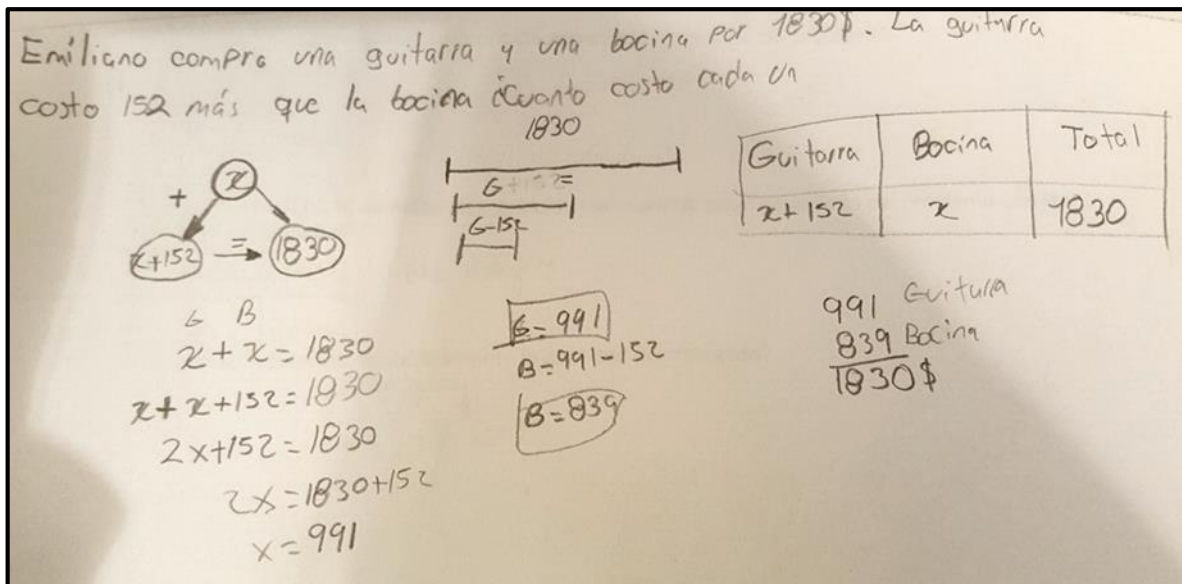 Emiliano compra una guitarra y una bocina por 1830$. La guitarra
costo 152 más que la bocina ¿Cuanto costo cada un
+
x
x+152
=
1830
1830
G+152=
G-152
Guitarra Bocina Total
x+152 x 1830
G B
x+x=1830
x+x+152=1830
2x+152=1830
2x=1830+152
x=991
G=991
B=991-152
B=839
991 Guitarra
839 Bocina
1830$